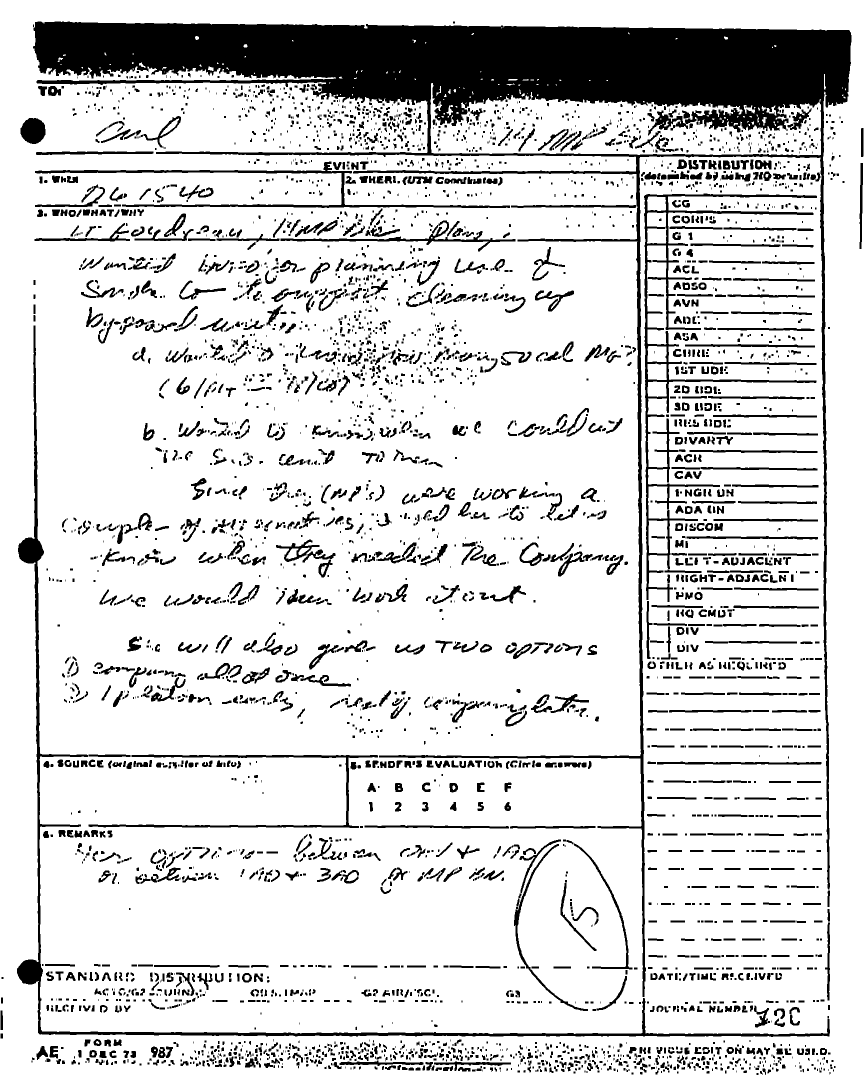 TO:
14 MP Bde
EVENT
DISTRIBUTION
(determined by using HQ or units)
1. WHEN
261540
2. WHERE. (UTM Coordinates)
3. WHO/WHAT/WHY
LT , 14 MP Bde Plans,
Wanted info for planning use of
Smoke Co to support cleaning up
bypassed units.
a. Wanted to know how many 50 cal MG?
b. Wanted to know when we could cut
the unit to them.
Since they (MP's) were working a
couple of alternatives, I asked her to let us
know when they needed the Company.
We would then work it out.
She will also give us two options
① company all at once
② 1 platoon early, rest of company later.
CG
CORPS
G 1
G 4
ACL
ADSO
AVN
ADE
ASA
CBRE
1ST BDE
2D BDE
3D BDE
RES BDE
DIVARTY
ACR
CAV
ENGR BN
ADA BN
DISCOM
MI
LEFT-ADJACENT
RIGHT-ADJACENT
PMO
HQ CMDT
DIV
DIV
OTHER AS REQUIRED
4. SOURCE (original supplier of info)
5. SENDER'S EVALUATION (Circle answers)
A B C D E F
1 2 3 4 5 6
6. REMARKS
Her options between & 1AD
or between 1AD & 3AD for MP BN.
15
STANDARD DISTRIBUTION:
G2 AIR
G3
RECEIVED BY
DATE/TIME RECEIVED
JOURNAL NUMBER 12C
AE FORM 1 DEC 73 987
PREVIOUS EDITION MAY BE USED.